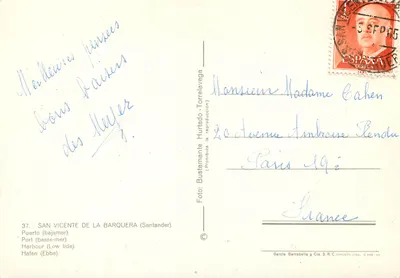 Meilleures pensées
bons baisers
des Meyer
31. SAN VICENTE DE LA BARQUERA (Santander)
Puerto (bajamar)
Port (basse-mer)
Harbour (Low tide)
Hafen (Ebbe)
© Foto: Bustamante Hurtado - Torrelavega
(Prohibida la reproducción)
ESPAÑA
Monsieur Madame Cahen
20 Avenue Ambroise Rendu
Paris 19e
France